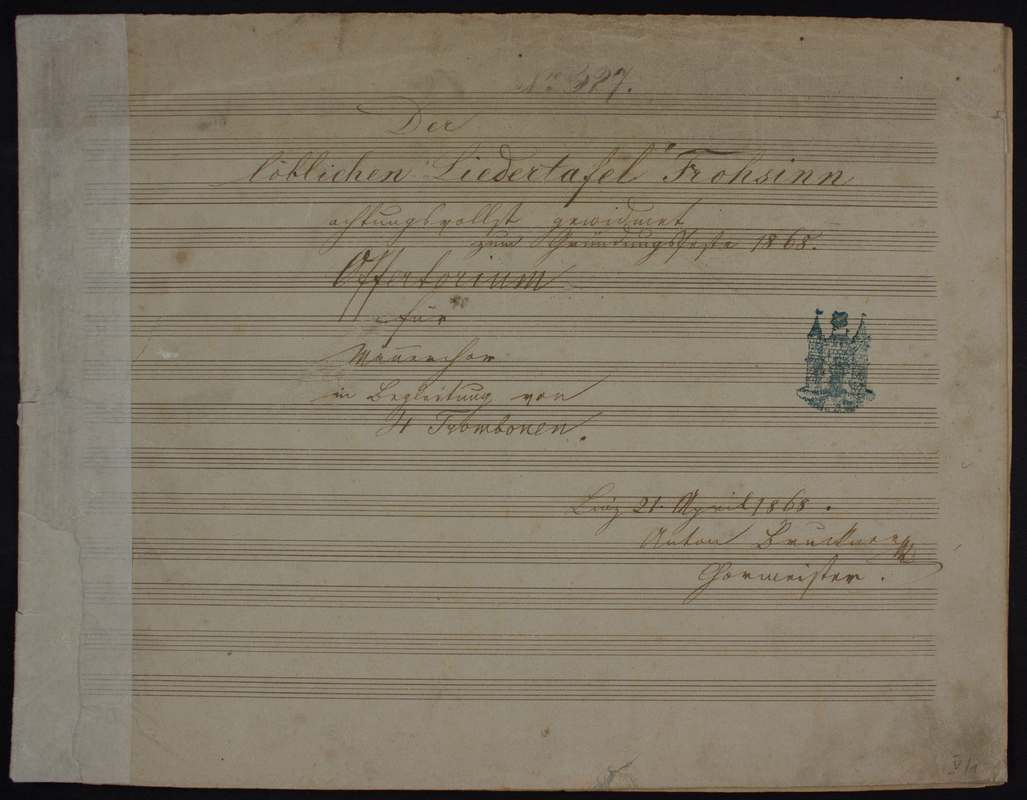 No 327.
Der
löblichen Liedertafel "Frohsinn
achtungsvollst gewidmet
zum Gründungsfeste 1868.
Offertorium
für
Männerchor
in Begleitung von
4 Trombonen.
Linz 21. April 1868.
Anton Bruckner
Chormeister.
V/1